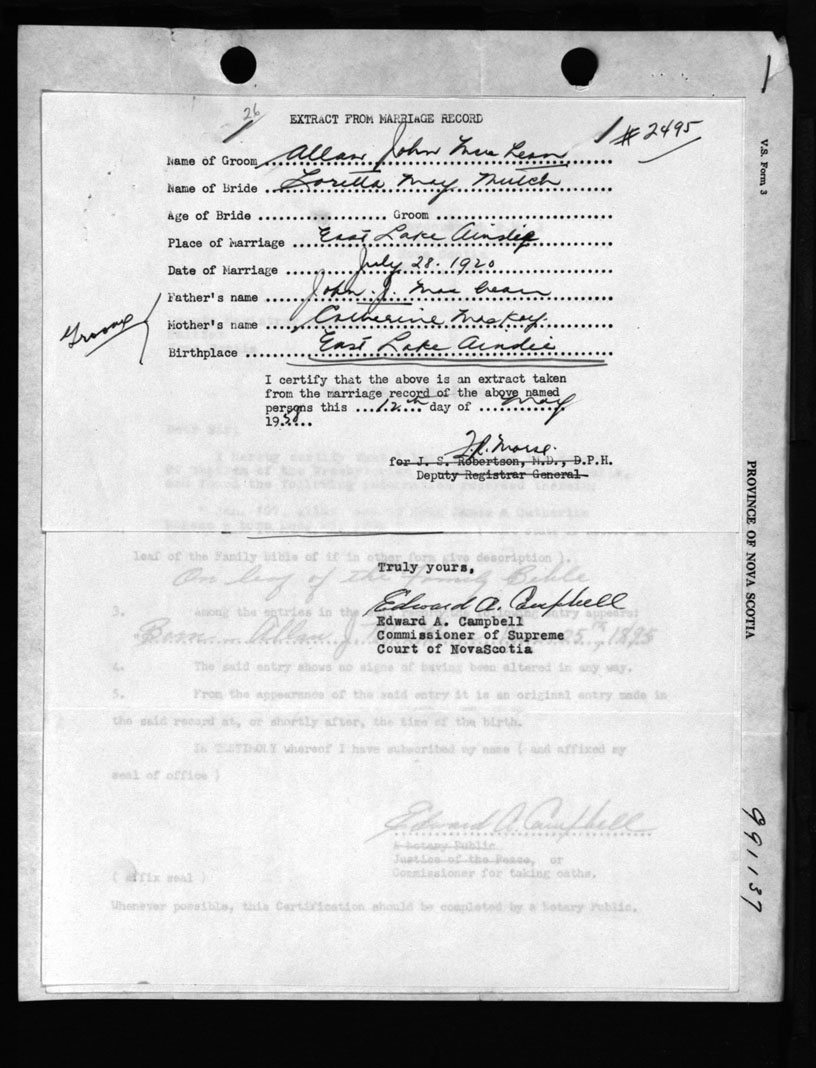 26
EXTRACT FROM MARRIAGE RECORD
# 2495
Name of Groom Allan John MacLean
Name of Bride Loretta May Mutch
Age of Bride Groom
Place of Marriage East Lake Ainslie
Date of Marriage July 28. 1920
Father's name John. J. MacLean
Groom
Mother's name Catherine MacKay.
Birthplace East Lake Ainslie
I certify that the above is an extract taken
from the marriage record of the above named
persons this 12th day of May
19
for J. S. Robertson, M.D., D.P.H.
Deputy Registrar General
Dear Sir:
leaf of the Family Bible or if in other form give description).
On leaf of the Family Bible
Truly yours,
Edward A. Campbell
Edward A. Campbell
Commissioner of Supreme
Court of NovaScotia
3. Among the entries in the following entry appears:
Born Allan J. 25th, 1895
4. The said entry shows no signs of having been altered in any way.
5. From the appearance of the said entry it is an original entry made in
the said record at, or shortly after, the time of the birth.
IN TESTIMONY whereof I have subscribed my name ( and affixed my
seal of office )
Edward A. Campbell
A Notary Public
Justice of the Peace, or
Commissioner for taking oaths.
( affix seal )
Whenever possible, this Certification should be completed by a Notary Public.
V.S. Form 3
PROVINCE OF NOVA SCOTIA
991137